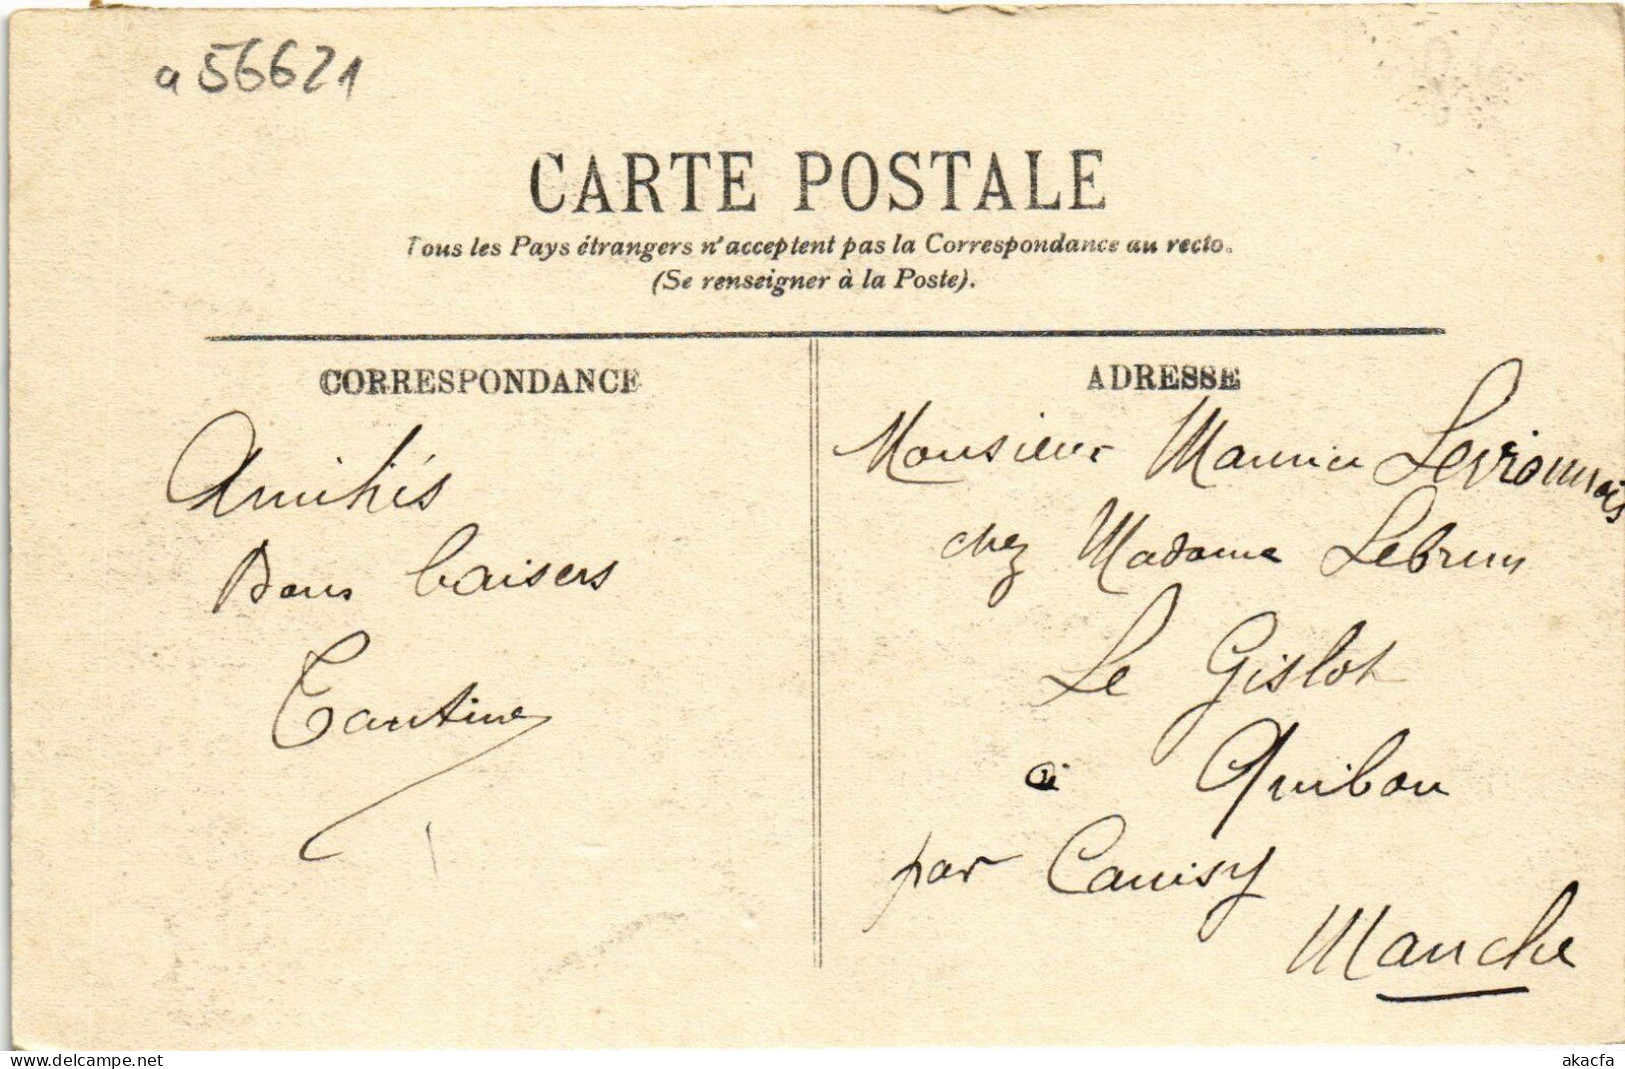 a 56621
CARTE POSTALE
Tous les Pays étrangers n'acceptent pas la Correspondance au recto.
(Se renseigner à la Poste).
CORRESPONDANCE
Amitiés
Bons baisers
Tantine
ADRESSE
Monsieur Maurice
chez Madame Lebrun
Le Gislot
à Quibou
par Canisy
Manche
www.delcampe.net
akacfa